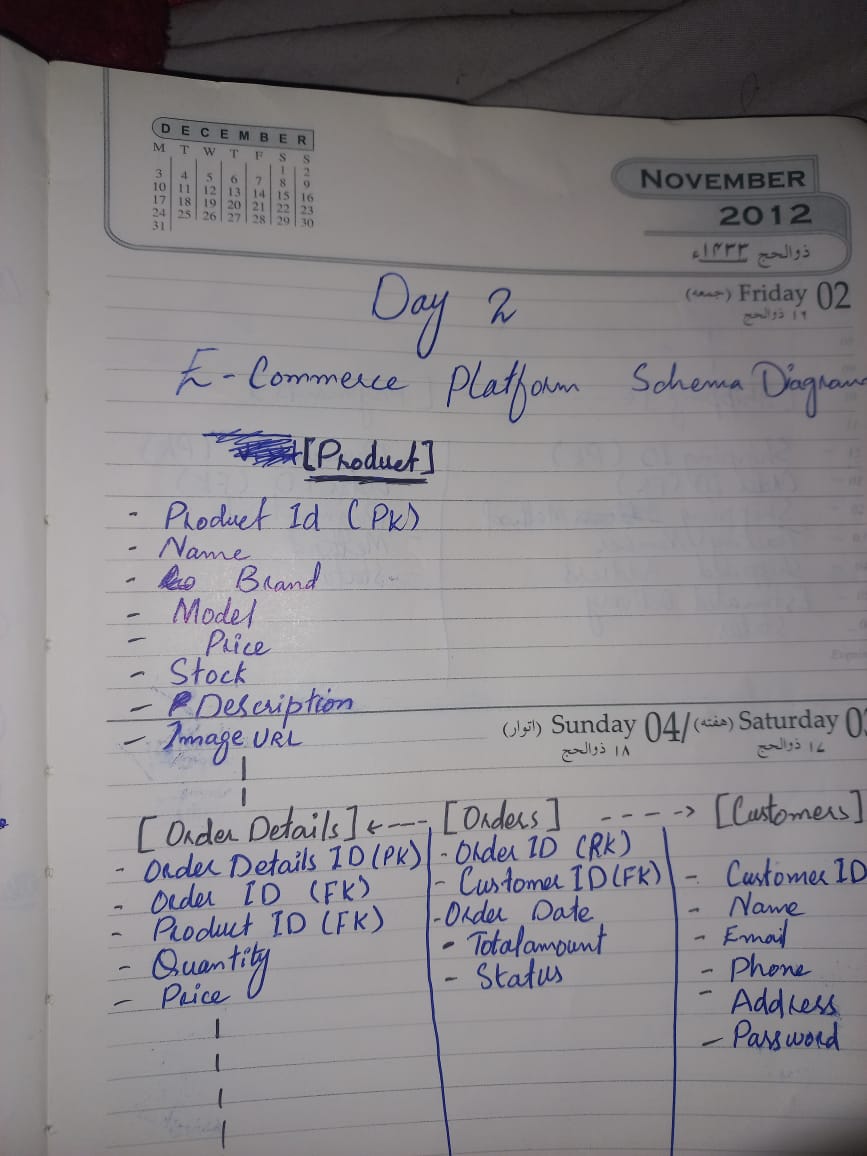 DECEMBER
M T W T F S S
1 2
3 4 5 6 7 8 9
10 11 12 13 14 15 16
17 18 19 20 21 22 23
24 25 26 27 28 29 30
31
NOVEMBER
2012
ذوالحج ١٤٣٣ء
(جمعه) Friday 02
١٦ ذوالحج
Day 2
E-Commerce Platform Schema Diagram
[Product]
- Product Id (PK)
- Name
- Brand
- Model
- Price
- Stock
- Description
- Image URL
(اتوار) Sunday 04/(هفته) Saturday 03
١٨ ذوالحج ١٧ ذوالحج
[Order Details] <--- [Orders] ----> [Customers]
- Order Details ID (PK)
- Order ID (FK)
- Product ID (FK)
- Quantity
- Price
- Order ID (RK)
- Customer ID (FK)
- Order Date
- Totalamount
- Status
- Customer ID
- Name
- Email
- Phone
- Address
- Password